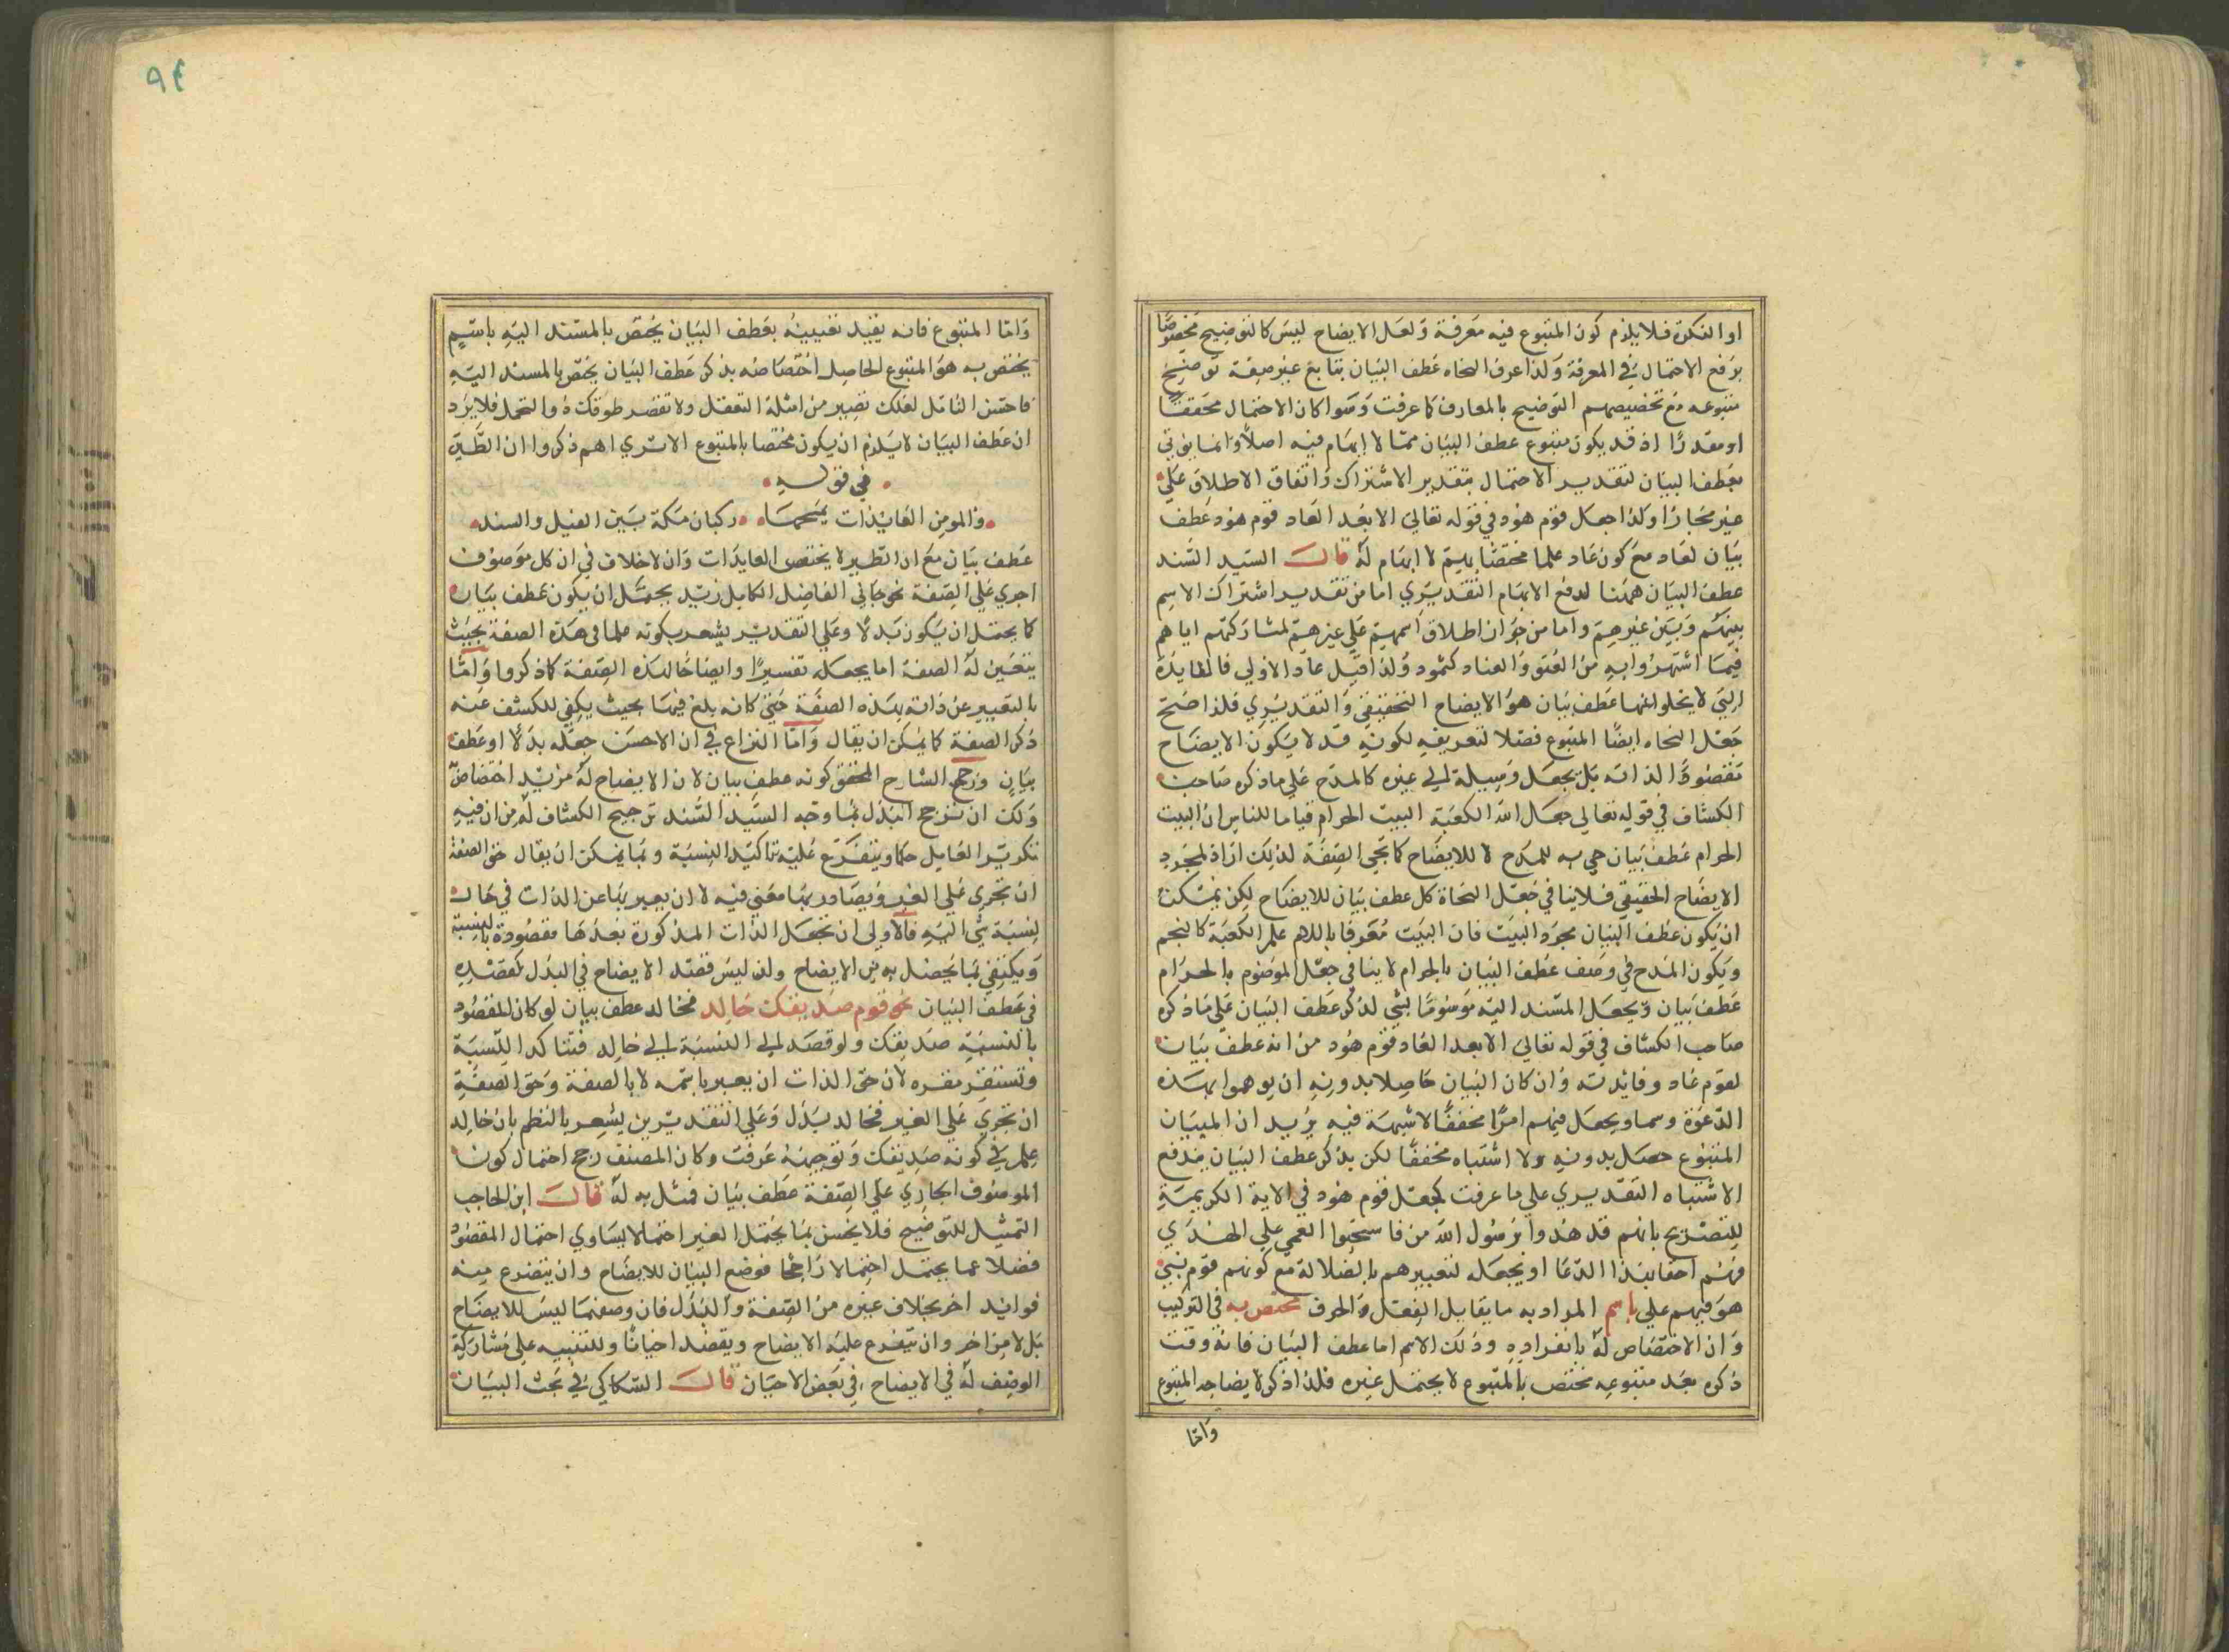 او النكرة فلا يلزم كون المتبوع فيه معرفة ولعل الايضاح ليس كالتوضيح مخصوصا
برفع الاحتمال في المعرفة ولذا عرف النحاه عطف البيان بتابع غير صفة توضيح
متبوعه مع تخصيصهم التوضيح بالمعارف كما عرفت وسوا كان الاحتمال محققا
او مقدرا اذ قد يكون متبوع عطف البيان مما لا ابهام فيه اصلا وانما يوتي
بعطف البيان لتقدير الاحتمال بتقدير الاشتراك واتفاق الاطلاق علي
غير مجازا وكذا جعل قوم هود في قوله تعالي الا بعدا لعاد قوم هود عطف
بيان لعاد مع كون عاد علما مختصا بهم لا ابهام له قال السيد السند
عطف البيان همنا لدفع الابهام التقديري اما من تقدير اشتراك الاسم
بينهم وبين غيرهم واما من جواز اطلاق اسمهم علي غيرهم لمشاركتهم اياهم
فيما اشتهروا به من العتو والعناد كثمود ولذا قيل عاد الاولي فالفايدة
التي لا يخلوا عنها عطف بيان هو الايضاح التحقيقي والتقديري فلذا صح
جعل النحاه ايضا المتبوع فصلا لتعريفه لكونه قد لا يكون الايضاح
مقصودا لذاته بل يجعل وسيلة الي غيره كالمدح علي ما ذكره صاحب
الكشاف في قوله تعالي جعل الله الكعبة البيت الحرام قياما للناس ان البيت
الحرام عطف بيان جي به للمدح لا للايضاح كما تجي الصفة لذلك اراد لمجرد
الايضاح الحقيقي فلا ينافي جعل النحاة كل عطف بيان للايضاح لكن يمكن
ان يكون عطف البيان مجرد البيت فان البيت معرفا باللام علم الكعبة كالنجم
ويكون المدح في وصف عطف البيان بالحرام لا ينافي جعل الموصوم بالحرام
عطف بيان ويجعل المسند اليه موسوما بشي لذكر عطف البيان علي ما ذكره
صاحب الكشاف في قوله تعالي الا بعدا لعاد قوم هود من انه عطف بيان
لقوم عاد وفائدته وان كان البيان حاصلا بدونه ان يوهموا بهذه
الدعوة وسما ويجعل فيهم امرا محققا لا شبهة فيه يريد ان المبيان
المتبوع حصل بدونه ولا اشتباه محققا لكن بذكر عطف البيان يندفع
الاشتباه التقديري علي ما عرفت كجعل قوم هود في الاية الكريمة
للتصريح بانهم قد هدوا برسول الله من فاستحبوا العمي علي الهدي
فهم احقا بهذا الدعا او يجعله لتعييرهم بالضلالة مع كونهم قوم نبي
هو فيهم علي باسم المراد به ما يقابل الفعل والحرف مختص به في التركيب
وان الاختصاص له بانفراده وذلك الاسم اما عطف البيان فانه وقت
ذكره بعد متبوعه مختص بالمتبوع لا يحتمل غيره فلذا ذكر لايضاحه المتبوع
واما
٩٤
واما المتبوع فانه يفيد تعيينه بعطف البيان يختص بالمسند اليه باسم
يختص به هو المتبوع الحاصل اختصاصه بذكر عطف البيان يختص بالمسند اليه
فاحسن التامل لعلك تصير من امثلة التعقل ولا تقصر طوقك ذو التحمل فلا يرد
ان عطف البيان لا يلزم ان يكون مختصا بالمتبوع الا تري انهم ذكروا ان الطير
في قوله
والمومن العايذات يمسحها ركبان مكة بين الغيل والسند
عطف بيان مع ان الطير لا يختص العايذات وان لا خلاف في ان كل موصوف
اجري علي الصفة نحو جاني الفاضل الكامل زيد يحتمل ان يكون عطف بيان
كما يحتمل ان يكون بدلا وعلي التقدير يشعر بكونه علما في هذه الصفة بحيث
يتعين له الصفة اما بجعله تفسيرا وايضاحا لهذه الصفة كما ذكروا واما
بالتعبير عن ذاته بهذه الصفة حتي كانه بلغ فيها بحيث يكفي للكشف عنه
ذكر الصفة كما يمكن ان يقال واما النزاع في ان الاحسن جعله بدلا او عطف
بيان ورجح الشارح المحقق كونه عطف بيان لان الايضاح له مزيد اختصاص
ولك ان ترجح البدل بما وجه السيد السند ترجيح الكشاف له من ان فيه
تكرير العامل حكما ويتفرع عليه تاكيد النسبة وبما يمكن ان يقال حق الصفة
ان تجري علي الغير ويصادر بها معني فيه لا ان يعبر بها عن الذات في حال
لنسبة شي اليه فالاولي ان تجعل الذات المذكورة بعدها مقصودة بالنسبة
ويكتفي بما يحصل به من الايضاح ولئن ليس قصد الايضاح في البدل كقصده
في عطف البيان نحو قدم صديقك خالد فخالد عطف بيان لو كان المقصود
بالنسبة صديقك ولو قصد الي النسبة الي خالد فتتاكد النسبة
وتستقر مقره لان حق الذات ان يعبر باسمه لا بالصفة وحق الصفة
ان تجري علي الغير فخالد بدل وعلي التقديرين يشعر بالنظم بان خالد
علم في كونه صديقك وتوجيهه عرفت وكان المصنف رجح احتمال كون
الموصوف الجاري علي الصفة عطف بيان فمثل به له قال ابن الحاجب
التمثيل للتوضيح فلا يحسن بما يحتمل الغير احتمالا يساوي احتمال المقصود
فضلا عما يحتمل احتمالا راجحا فوضع البيان للايضاح وان يتفرع منه
فوايد اخر بخلاف غيره من الصفة والبدل فان وضعهما ليس للايضاح
بل لامر اخر وان يتفرع عليه الايضاح ويقصد احيانا وللتنبيه علي مشاركة
الوصف له في الايضاح في بعض الاحيان قال السكاكي في بحث البيان